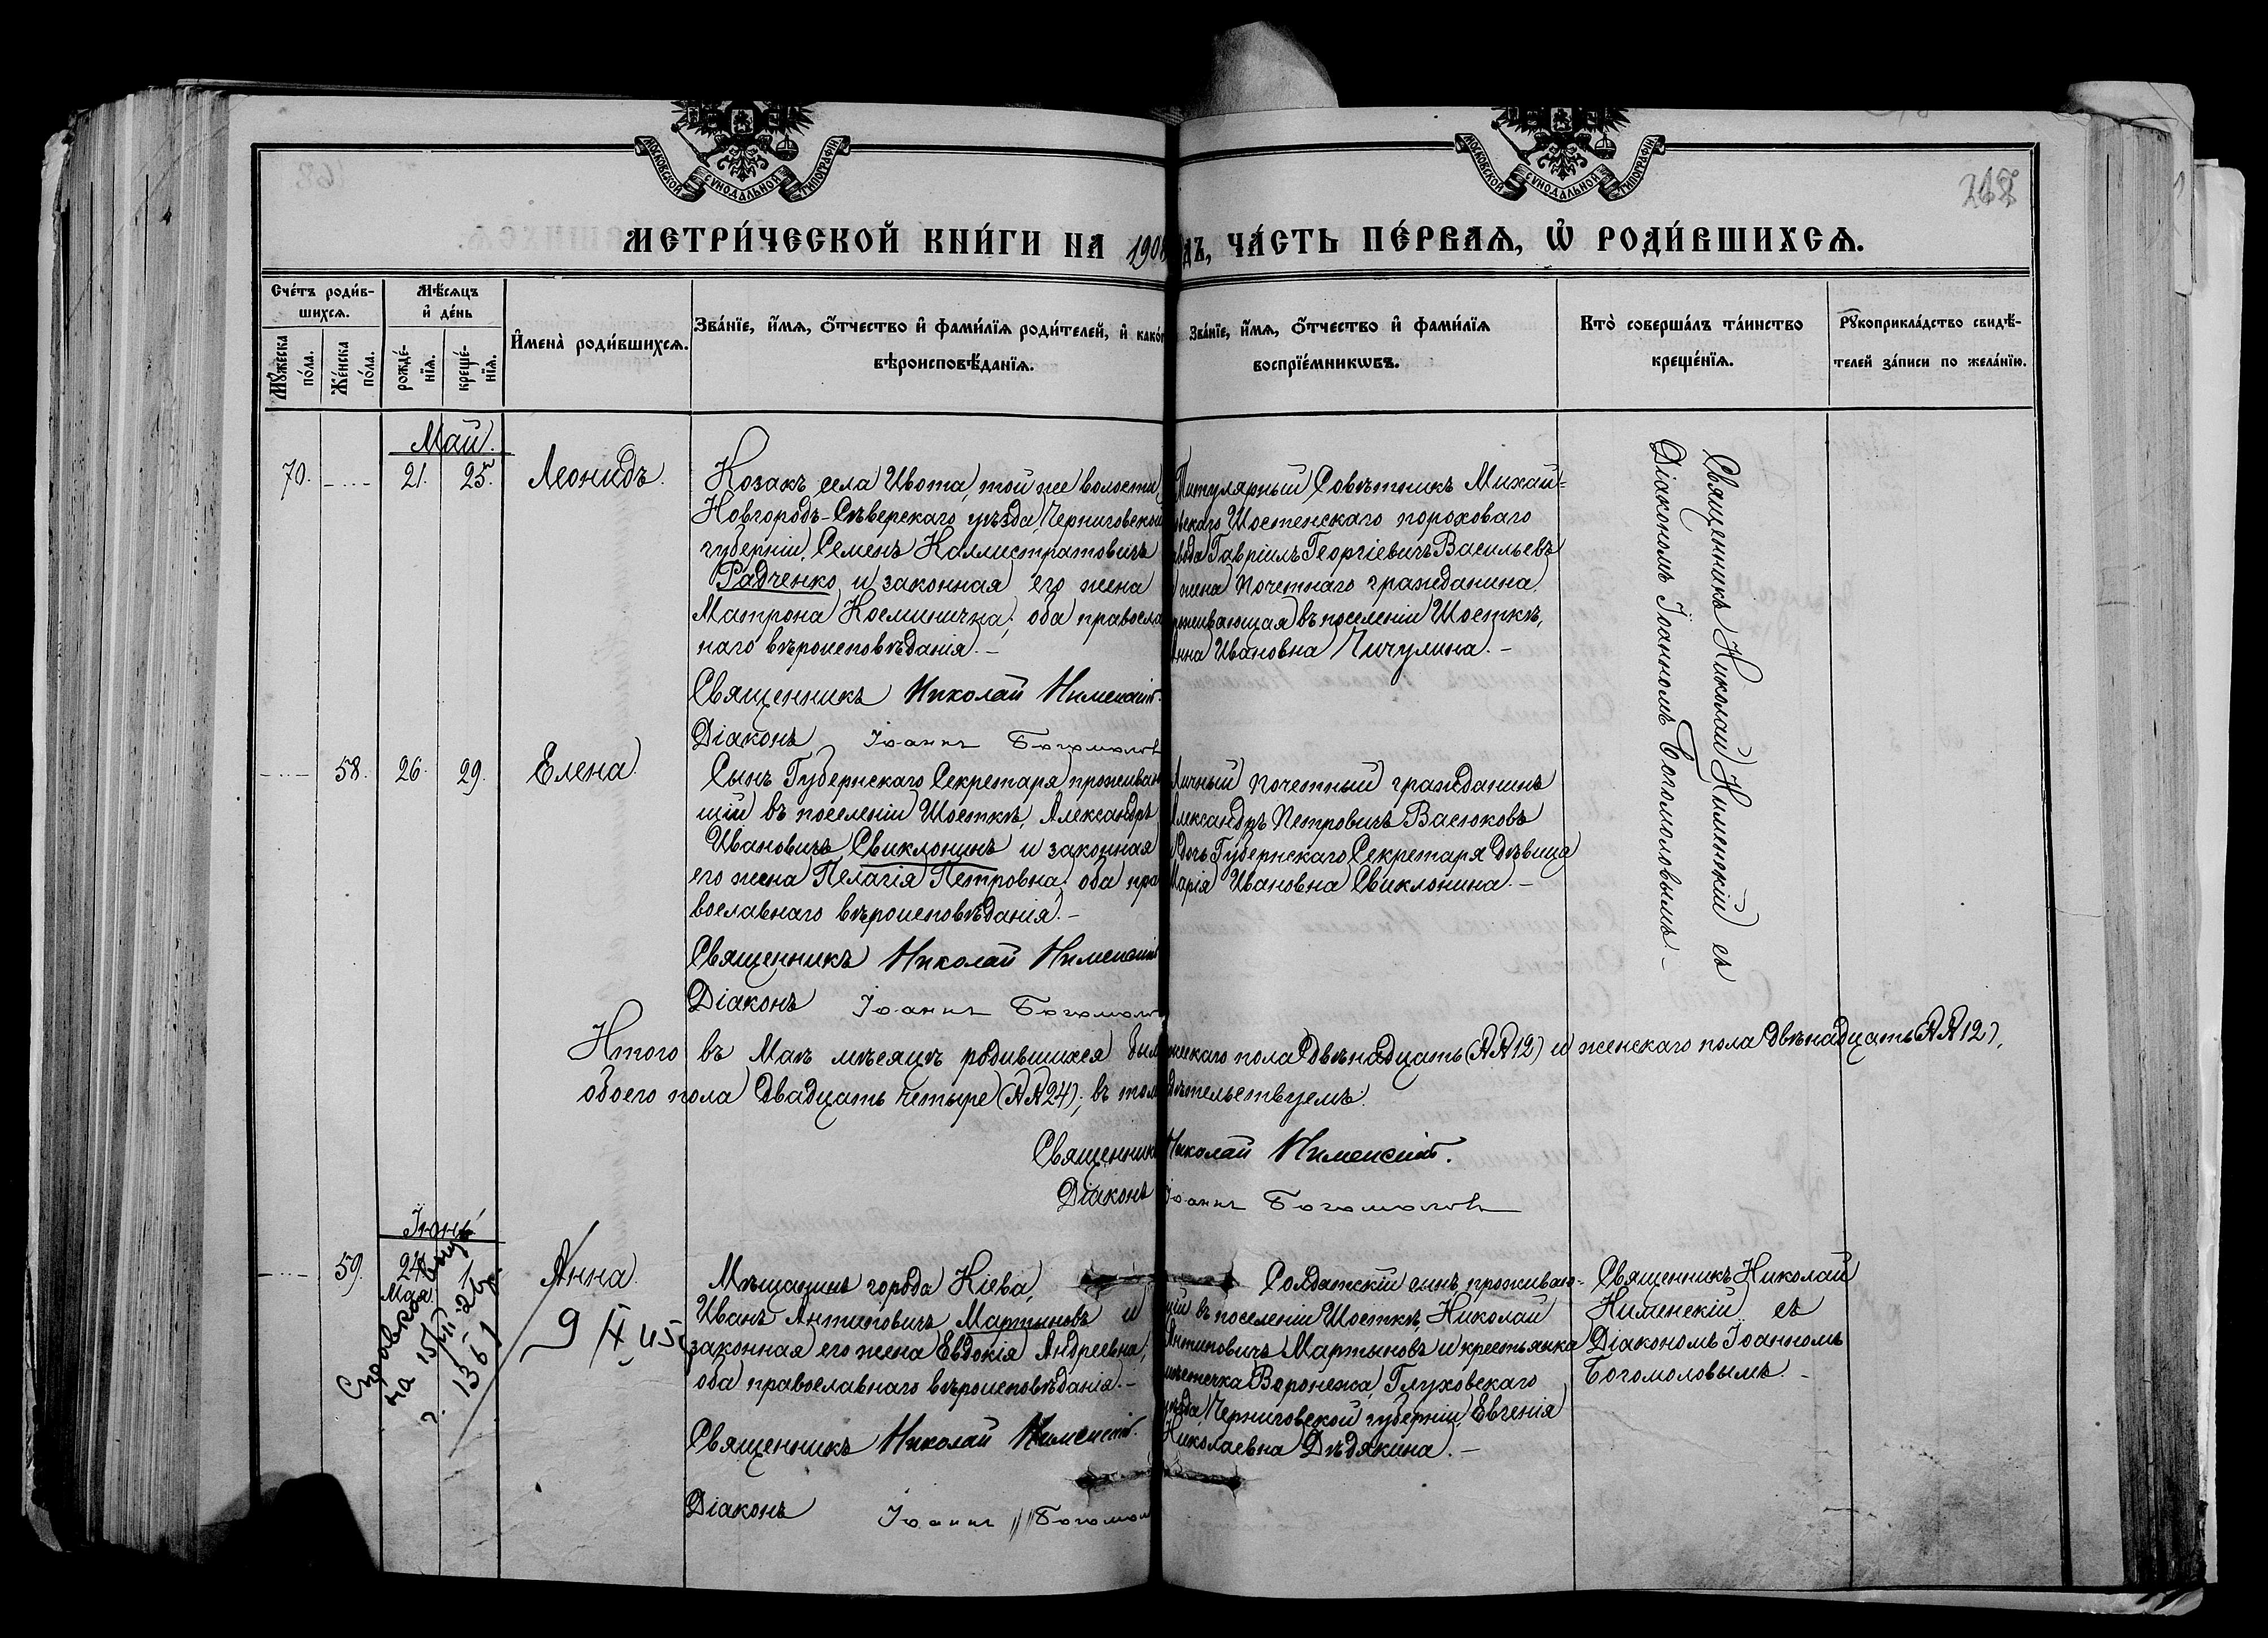 МОСКОВСКОЙ СУНОДАЛЬНОЙ ТИПОГРАФІИ
МОСКОВСКОЙ СУНОДАЛЬНОЙ ТИПОГРАФІИ
МЕТРИ́ЧЕСКОЙ КНИ́ГИ НА 1908
ДЪ, ЧА́СТЬ ПЕ́РВАѦ, Ѡ҆ РОДИ́ВШИХСѦ.
Сче́тъ роди́в-
шихсѧ.
Мꙋ́жеска по́ла.
Же́нска по́ла.
Мѣ́сѧцъ
и҆ де́нь
рожде́-
нїѧ.
креще́-
нїѧ.
И҆мена̀ роди́вшихсѧ.
Зва́нїе, и҆́мѧ, ѻ҆́тчество и҆ фами́лїѧ роди́телей, и҆ како́г
вѣроисповѣ́данїѧ.
Зва́нїе, и҆́мѧ, ѻ҆́тчество и҆ фами́лїѧ
воспрїе́мникѡвъ.
Кто̀ соверша́лъ та́инство
креще́нїѧ.
Рꙋкоприкла́дство свидѣ́-
телей за́писи по жела́нїю.
Май.
70.
21.
25.
Леонидъ.
Козакъ села Ивота, той же волости,
Новгородъ-Сѣверскаго уѣзда, Черниговской
губерніи, Семенъ Каллистратовичъ
Радченко и законная его жена
Матрона Косминична; оба правосла
наго вѣроисповѣданія.–
Священникъ Николай Нименскій.
Діаконъ Іоаннъ Богомолов
Титулярный Совѣтникъ Михай=
вскаго Шостенскаго пороховаго
вода Гавріилъ Георгіевичъ Васильевъ
жена Почетнаго гражданина
роживающая въ поселеніи Шосткѣ,
Анна Ивановна Пичулина.–
Священникъ Николай Нименскій съ
Діакономъ Іоанномъ Богомоловымъ.–
58.
26.
29.
Елена.
Сынъ Губернскаго Секретаря проживаю
щій въ поселеніи Шосткѣ, Александръ
Ивановичъ Свиклонинъ и законная
его жена Пелагія Петровна; оба пра
вославнаго вѣроисповѣданія.–
Священникъ Николай Нименскій
Діаконъ Іоаннъ Богомолов
Личный Почетный гражданинъ
Александръ Петровичъ Васюковъ
дочь Губернскаго Секретаря дѣвица
Марія Ивановна Свиклонина.–
Итого въ Маѣ мѣсяцѣ родившихся был
жескаго пола двѣнадцать (АА12) и женскаго пола двѣнадцать (АА12),
обоего пола двадцать четыре (АА24); въ том
дѣтельствуемъ.
Священник Николай Нименскій.
Діаконъ Іоаннъ Богомоловъ
Іюнь
59.
24
Мая.
1
Анна.
9 IX 45
на 15
1361
Мѣщанинъ города Кіева,
Иванъ Антиповичъ Мартыновъ и
законная его жена Евдокія Андреевна;
оба православнаго вѣроисповѣданія.–
Священникъ Николай Нименскій.
Діаконъ Іоаннъ Богомол
Солдатскій сынъ, проживаю-
щій въ поселеніи Шосткѣ, Николай
Антиповичъ Мартыновъ и крестьянка
мѣстечка Воронежа, Глуховскаго
уѣзда, Черниговской губерніи, Евгенія
Николаевна Дѣдякина.–
Священникъ Николай
Нименскій съ
Діакономъ Іоанномъ
Богомоловымъ.–